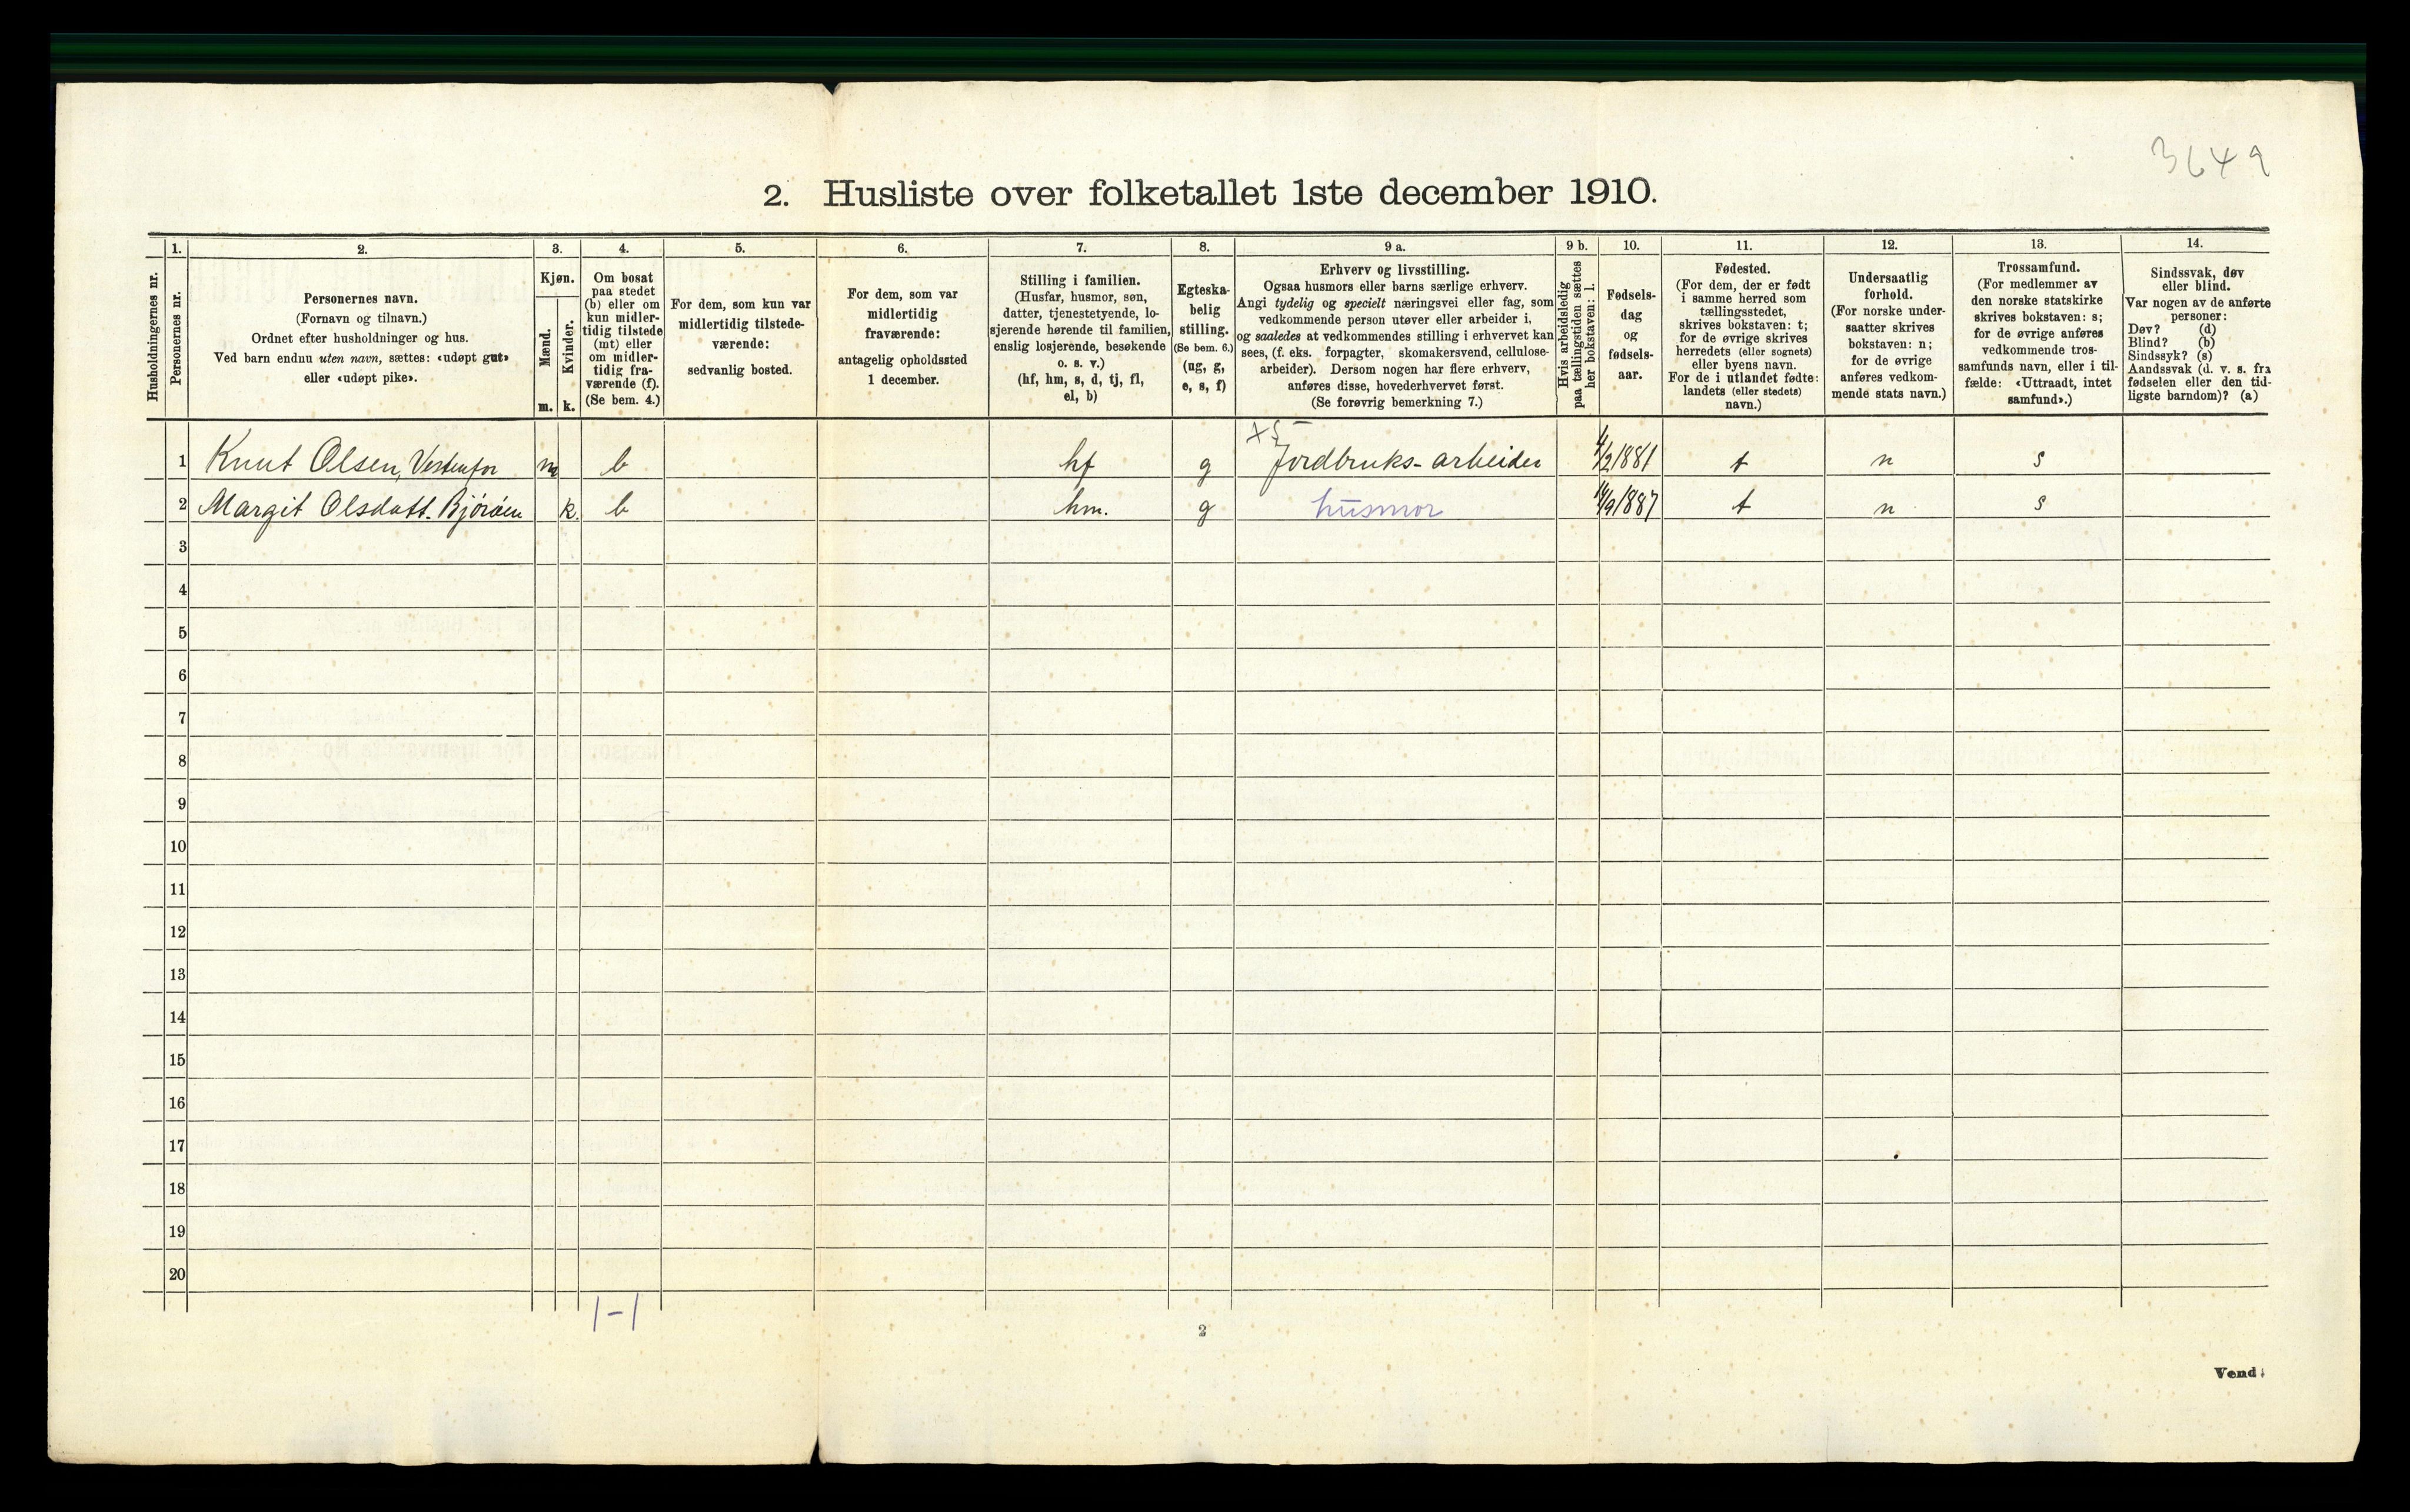 3649
2. Husliste over folketallet 1ste december 1910.
Husholdningernes nr.
1.
Personernes nr.
2.
Personernes navn.
(Fornavn og tilnavn.)
Ordnet efter husholdninger og hus.
Ved barn endnu uten navn, sættes: «udøpt gut»
eller «udøpt pike».
3.
Kjøn.
Mænd.
Kvinder.
m. k.
4.
Om bosat
paa stedet
(b) eller om
kun midler-
tidig tilstede
(mt) eller
om midler-
tidig fra-
værende (f).
(Se bem. 4.)
5.
For dem, som kun var
midlertidig tilstede-
værende:
sedvanlig bosted.
6.
For dem, som var
midlertidig
fraværende:
antagelig opholdssted
1 december.
7.
Stilling i familien.
(Husfar, husmor, søn,
datter, tjenestetyende, lo-
sjerende hørende til familien,
enslig losjerende, besøkende
o. s. v.)
(hf, hm, s, d, tj, fl,
el, b)
8.
Egteska-
belig
stilling.
(Se bem. 6.)
(ug, g,
e, s, f)
9 a.
Erhverv og livsstilling.
Ogsaa husmors eller barns særlige erhverv.
Angi tydelig og specielt næringsvei eller fag, som
vedkommende person utøver eller arbeider i,
og saaledes at vedkommendes stilling i erhvervet kan
sees, (f. eks. forpagter, skomakersvend, cellulose-
arbeider). Dersom nogen har flere erhverv,
anføres disse, hovederhvervet først.
(Se forøvrig bemerkning 7.)
9 b.
Hvis arbeidsledig
paa tællingstiden sættes
her bokstaven: l.
10.
Fødsels-
dag
og
fødsels-
aar.
11.
Fødested.
(For dem, der er født
i samme herred som
tællingsstedet,
skrives bokstaven: t;
for de øvrige skrives
herredets (eller sognets)
eller byens navn.
For de i utlandet fødte:
landets (eller stedets)
navn.)
12.
Undersaatlig
forhold.
(For norske under-
saatter skrives
bokstaven: n;
for de øvrige
anføres vedkom-
mende stats navn.)
13.
Trossamfund.
(For medlemmer av
den norske statskirke
skrives bokstaven: s;
for de øvrige anføres
vedkommende tros-
samfunds navn, eller i til-
fælde: «Uttraadt, intet
samfund».)
14.
Sindssvak, døv
eller blind.
Var nogen av de anførte
personer:
Døv? (d)
Blind? (b)
Sindssyk? (s)
Aandssvak (d. v. s. fra
fødselen eller den tid-
ligste barndom)? (a)
1 Knut Olsen, Vestenfor m b hf g Jordbruks-arbeider 4/2 1881 t n s
2 Margit Olsdatt. Björöen k. b hm. g husmor 14/9 1887 t n s
3
4
5
6
7
8
9
10
11
12
13
14
15
16
17
18
19
20
1-1
2
Vend!